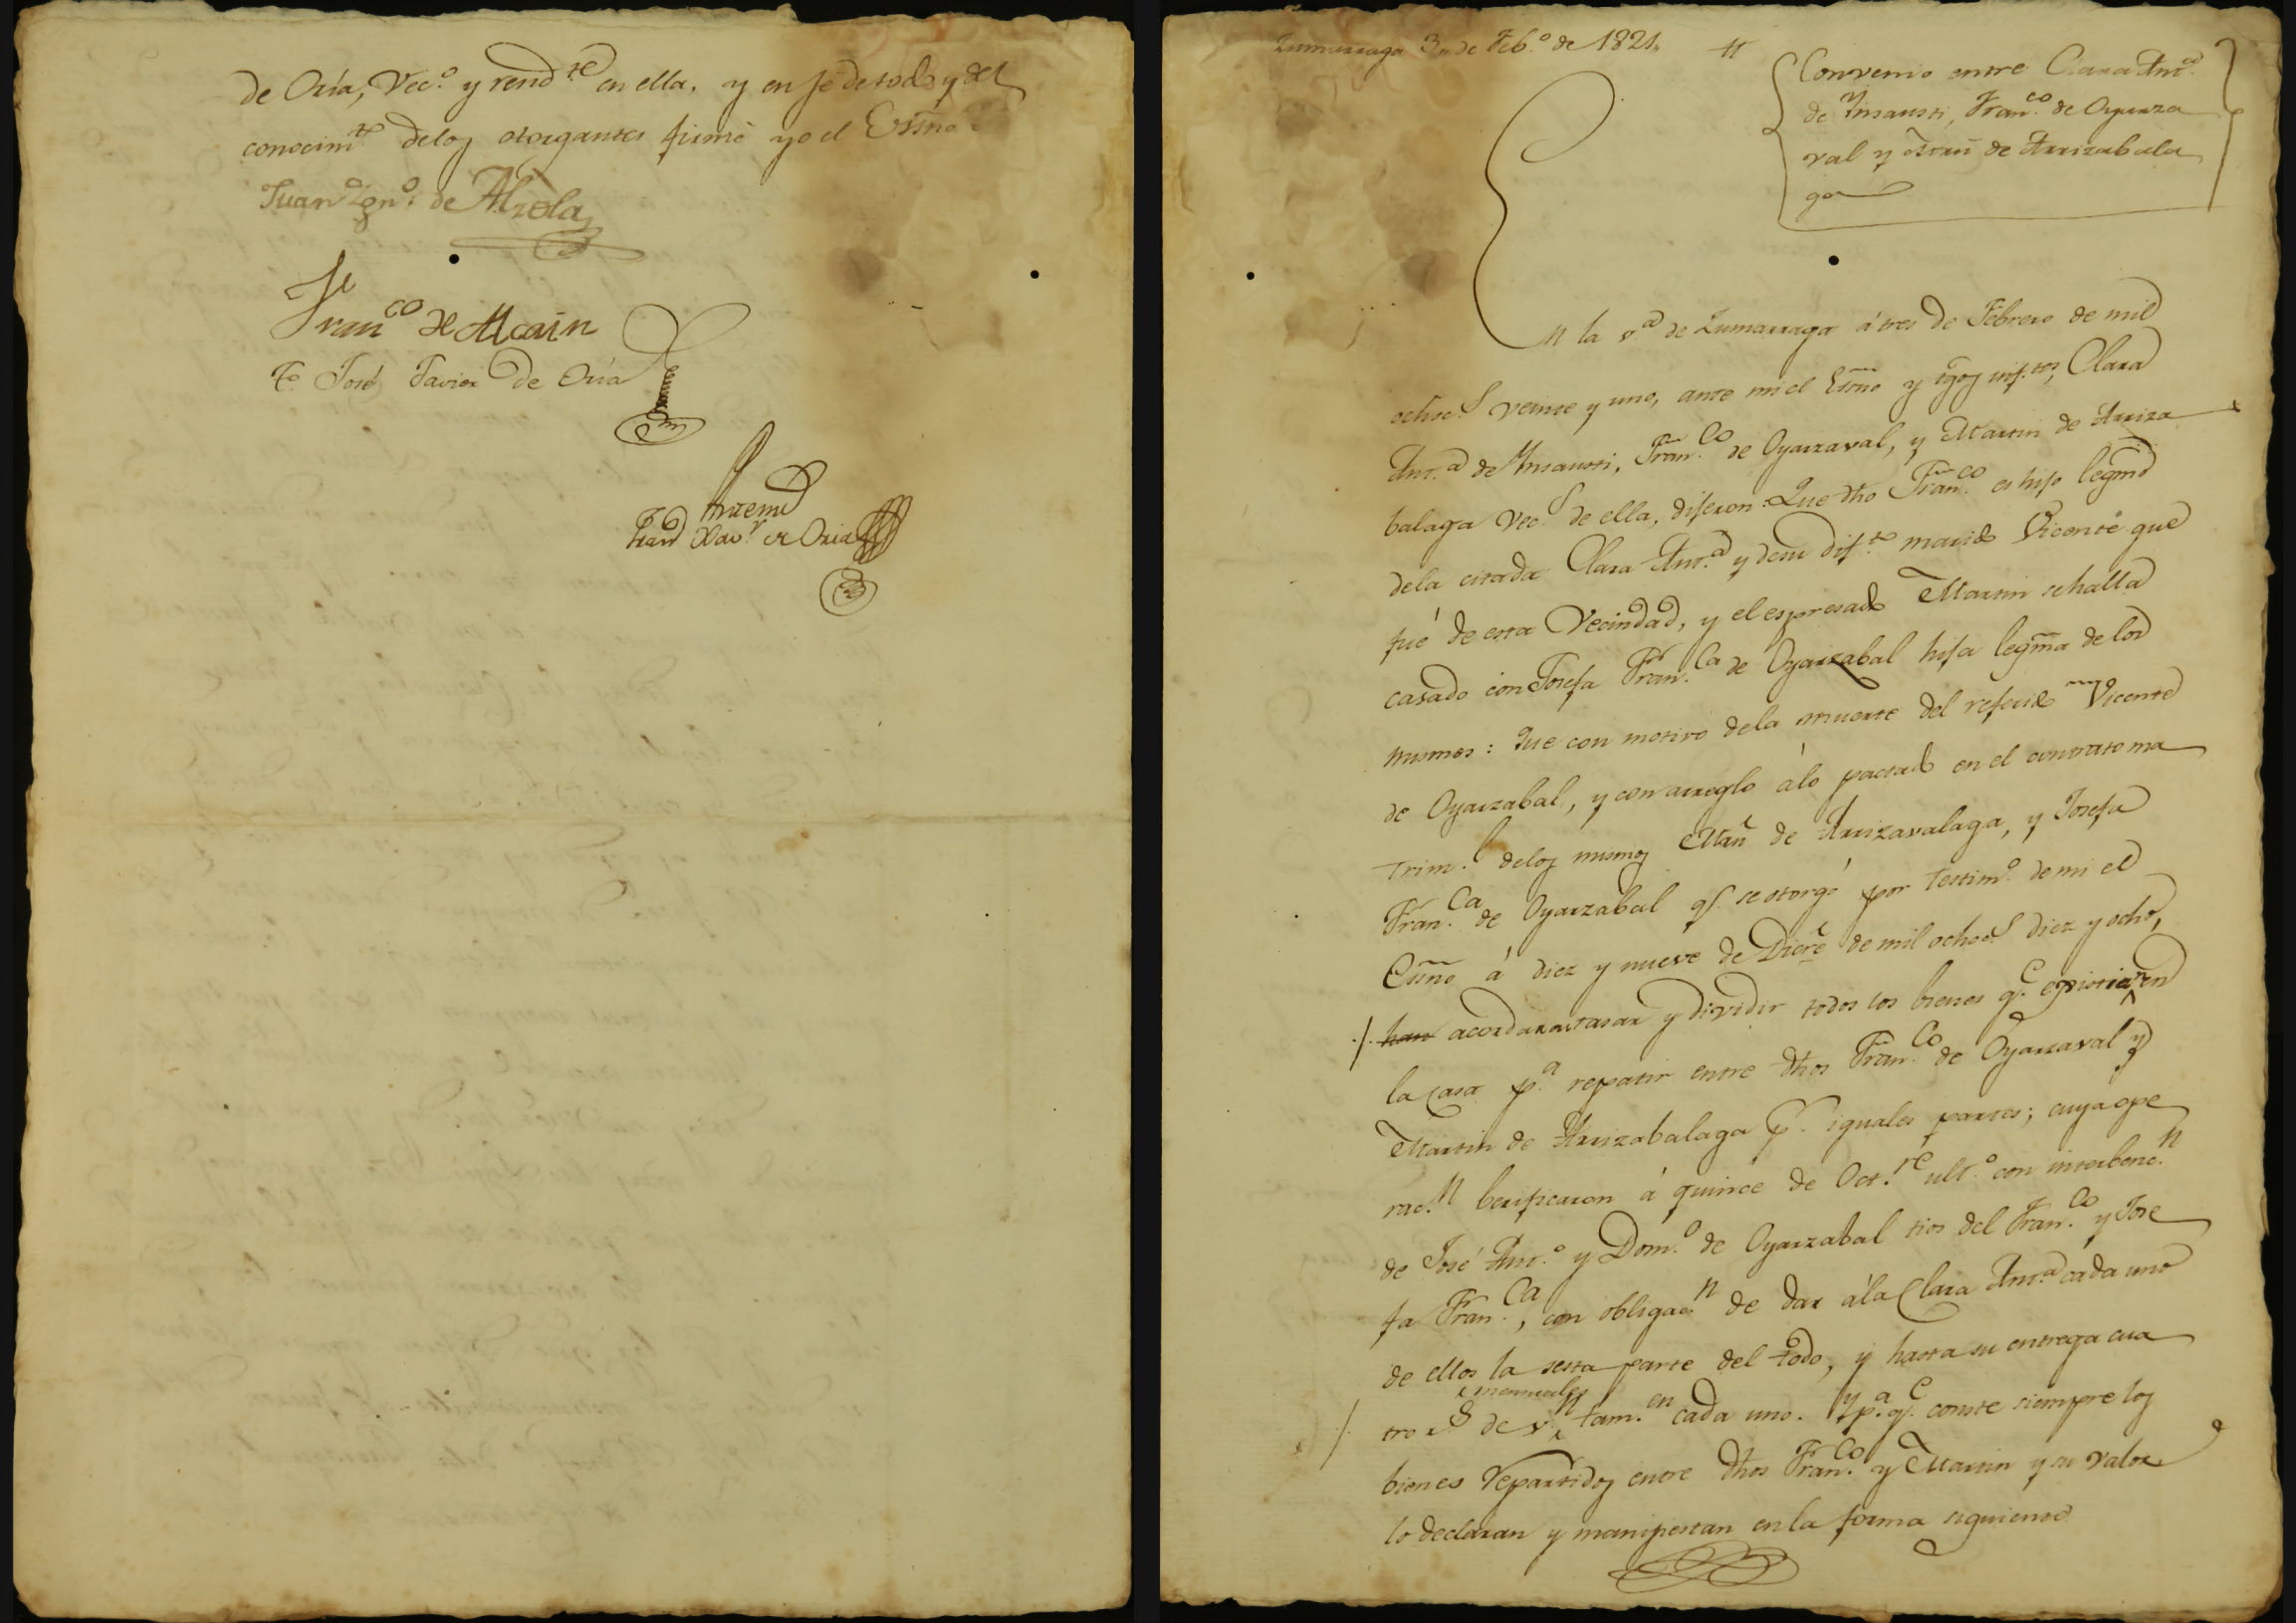 de Oria, Vec.º y resid.te en ella, y en fé de todo y del
conocim.to delos otorgantes firmé yo el Essno
Juan Ign.º de Alzola
Fran.co de Alcain
T.º José Javier de Oria
Antemi
Juan Xav.r de Oria
Zumarraga 3,, de Feb.º de 1821,,
Convenio entre Clara Ant.a
de Ynsausti, Fran.co de Oyarza
val y Mrñ de Arrizabala
ga
En la v.a de Zumarraga á tres de Febrero de mil
ochoc.s veinte y uno, ante mi el Essno y tgos infr.tos, Clara
Ant.a de Ynsausti, Fran.co de Oyarzaval, y Martin de Arriza
balaga Vec.s de ella, dijeron: Que dho Fran.co es hijo legmo
dela citada Clara Ant.a y desu dif.to marido Vicente que
fué de esta Vecindad, y el espresado Martin se halla
casado con Josefa Fran.ca de Oyarzabal hija legma de los
mismos: Que con motivo dela muerte del referido Vicente
de Oyarzabal, y con arreglo álo pactado en el contrato ma
trim.l delos mismos Mrñ de Arrizavalaga, y Josefa
Fran.ca de Oyarzabal q.e se otorgó por testim.º de mi el
Essno á diez y nueve de Dicre de mil ochoc.s diez y ocho,
./. han acordaron tasar y dividir todos los bienes q.e existian en
la Casa p.a repatir entre dhos Fran.co de Oyarzaval y
Martin de Arrizabalaga p.r iguales partes; cuya ope
rac.n berificaron á quince de Oct.re ult.º con interbenc.n
de José Ant.º y Dom.º de Oyarzabal tios del Fran.co y Jose
fa Fran.ca, con obligac.n de dar ála Clara Ant.a cada uno
de ellos la sesta parte del todo, y hasta su entrega cua
mensuales
/. tro r.s de v.n tam.en cada uno. Y p.a q.e conste siempre los
bienes repartidos entre dhos Fran.co y Martin y su valor
lo declaran y manifiestan en la forma siguiente